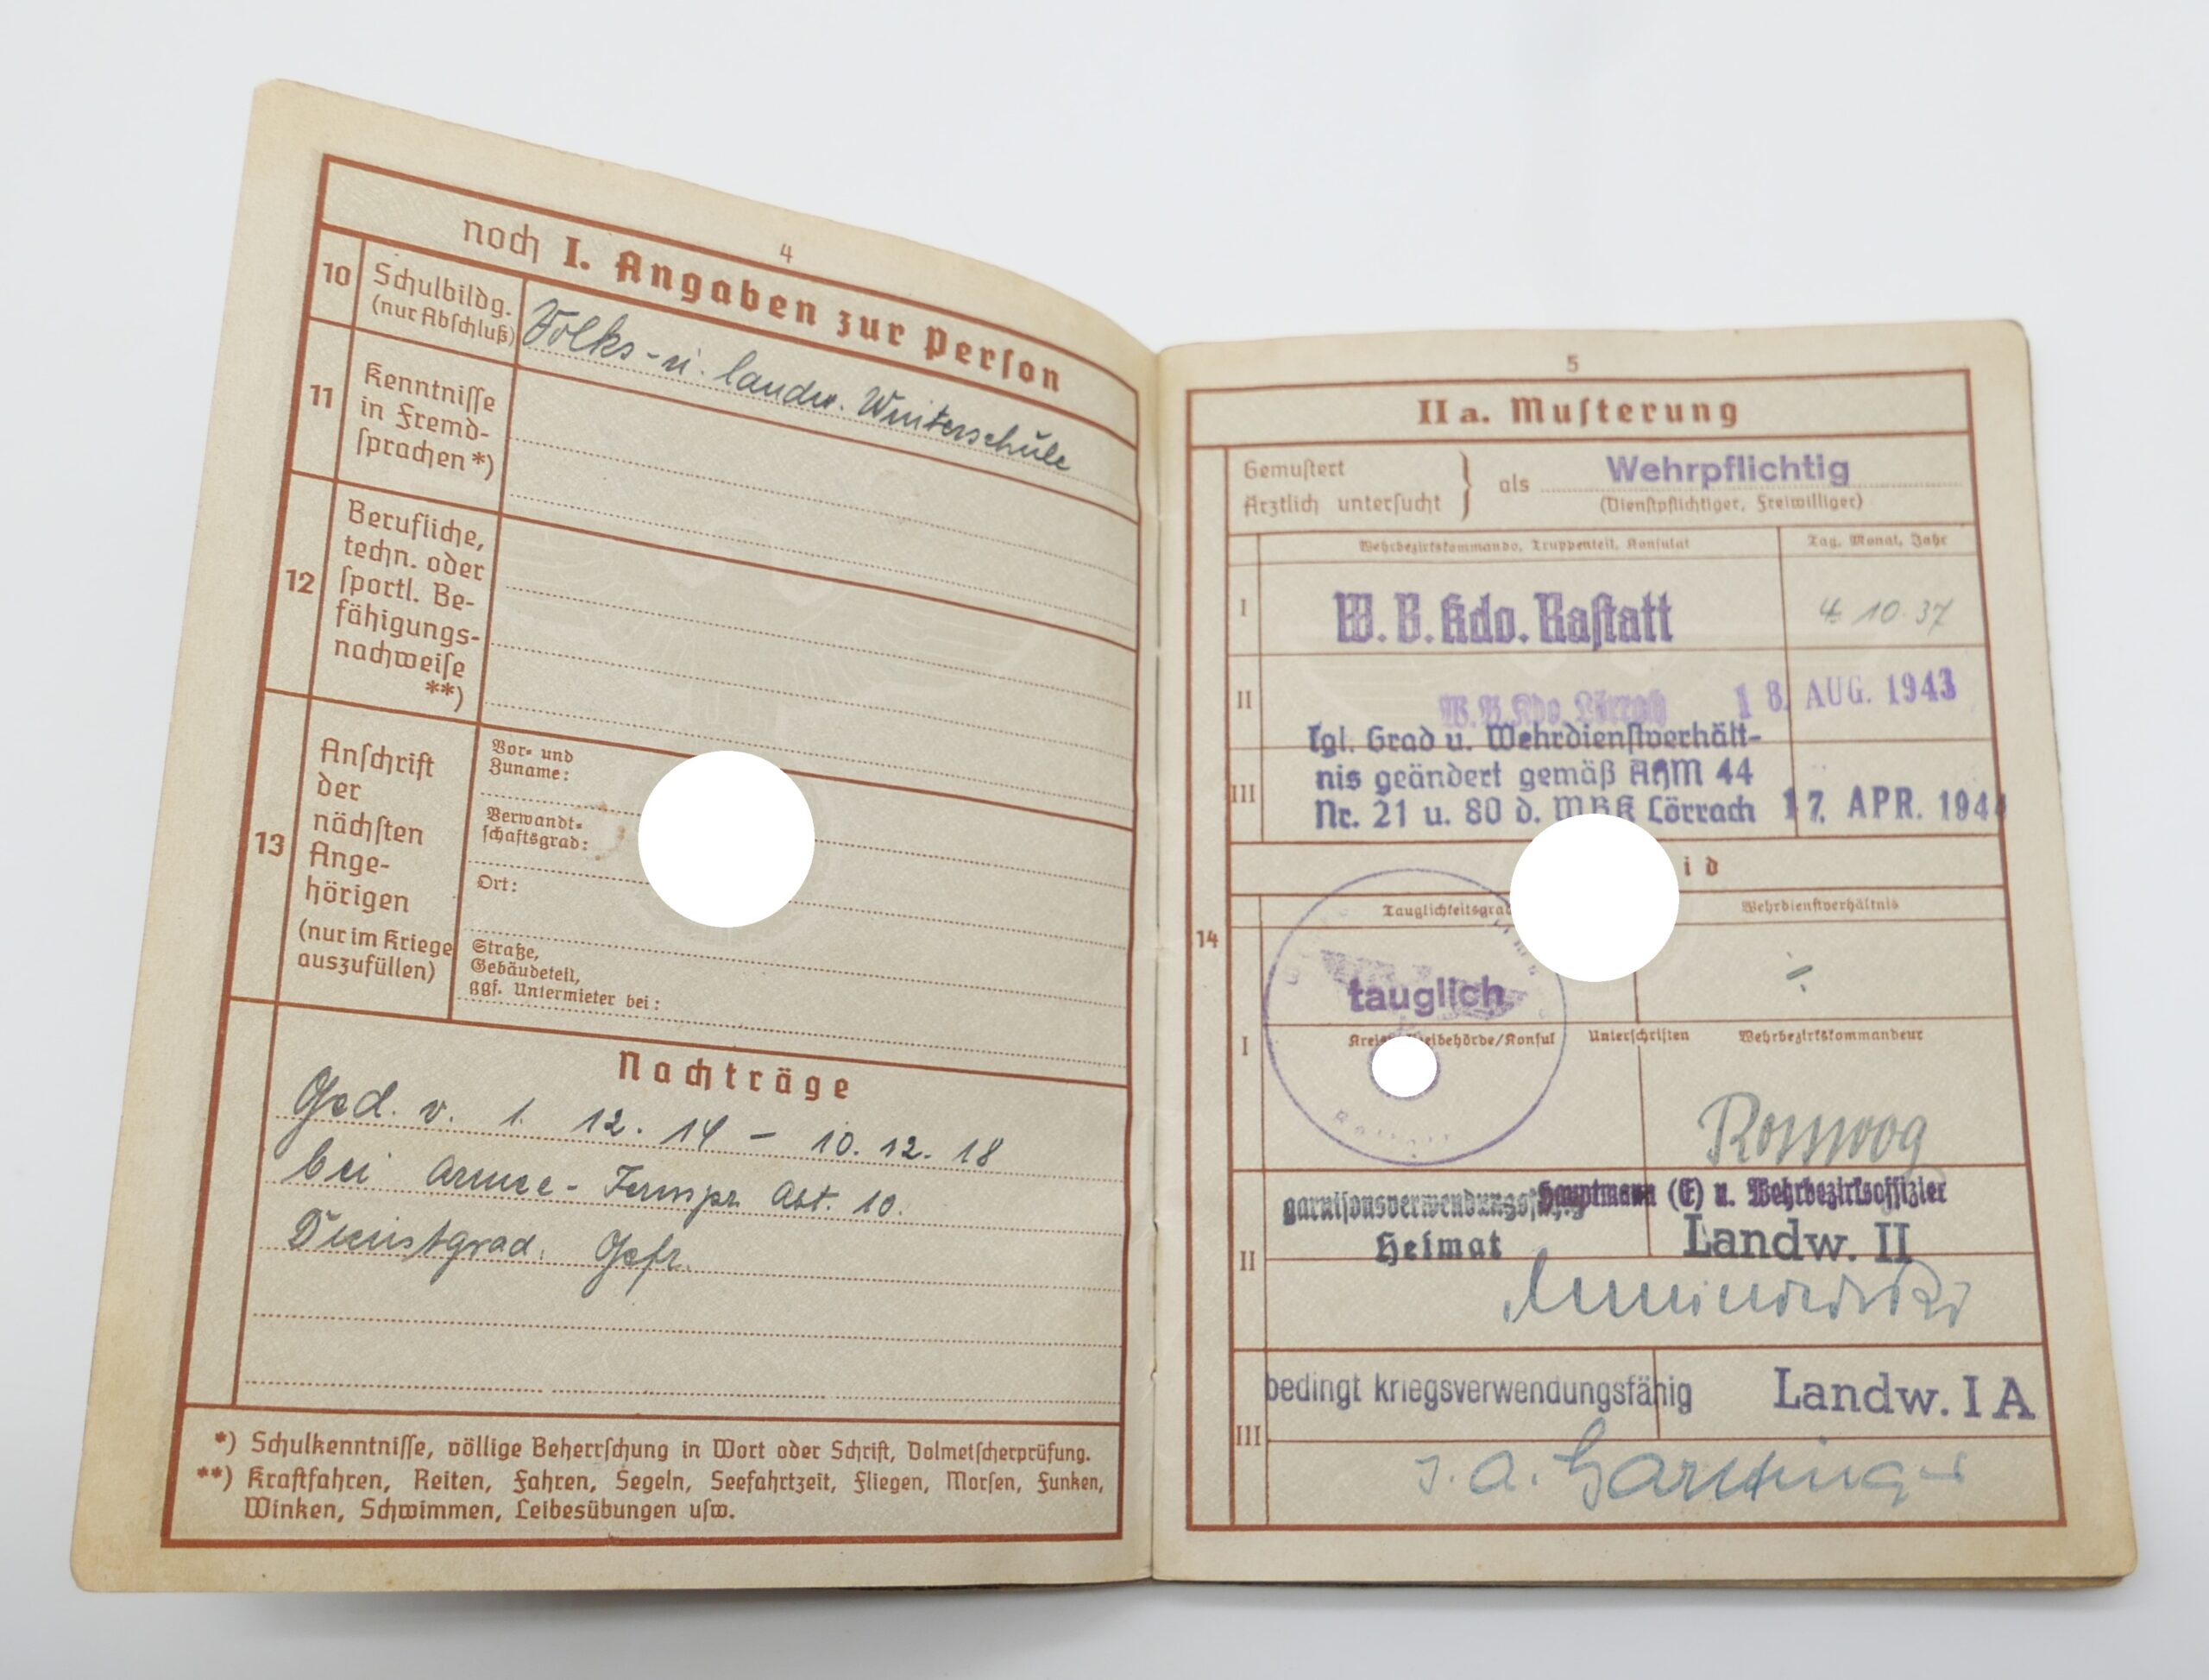 4
noch I. Angaben zur Person
10 Schulbildg.
(nur Abschluß)
Volks- u. landw. Winterschule
11 Kenntnisse
in Fremd-
sprachen *)
12 Berufliche,
techn. oder
sportl. Be-
fähigungs-
nachweise
**)
13 Anschrift
der
nächsten
Ange-
hörigen
(nur im Kriege
auszufüllen)
Vor- und
Zuname:
Verwandt-
schaftsgrad:
Ort:
Straße,
Gebäudeteil,
ggf. Untermieter bei:
Nachträge
Ged. v. 1. 12. 14 - 10. 12. 18
bei Armee- Fernspr. Abt. 10.
Dienstgrad. Gefr.
*) Schulkenntnisse, völlige Beherrschung in Wort oder Schrift, Dolmetscherprüfung.
**) Kraftfahren, Reiten, Fahren, Segeln, Seefahrtzeit, Fliegen, Morsen, Funken,
Winken, Schwimmen, Leibesübungen usw.
5
IIa. Musterung
Gemustert
Ärztlich untersucht } als Wehrpflichtig
(Dienstpflichtiger, Freiwilliger)
Wehrbezirkskommando, Truppenteil, Konsulat
Tag, Monat, Jahr
I W. B. Kdo. Rastatt 4. 10. 37
II W. B. Kdo Lörrach 18. AUG. 1943
Tgl. Grad u. Wehrdienstverhält-
nis geändert gemäß AHM 44
III Nr. 21 u. 80 d. WBK Lörrach 17. APR. 1944
id
14
Tauglichkeitsgrad
Wehrdienstverhältnis
tauglich ÷
I
Unterschriften
Wehrbezirkskommandeur
Rastatt
Hauptmann (E) u. Wehrbezirksoffizier
garnisonsverwendungsfähig
Heimat
Landw. II
II
bedingt kriegsverwendungsfähig Landw. I A
III